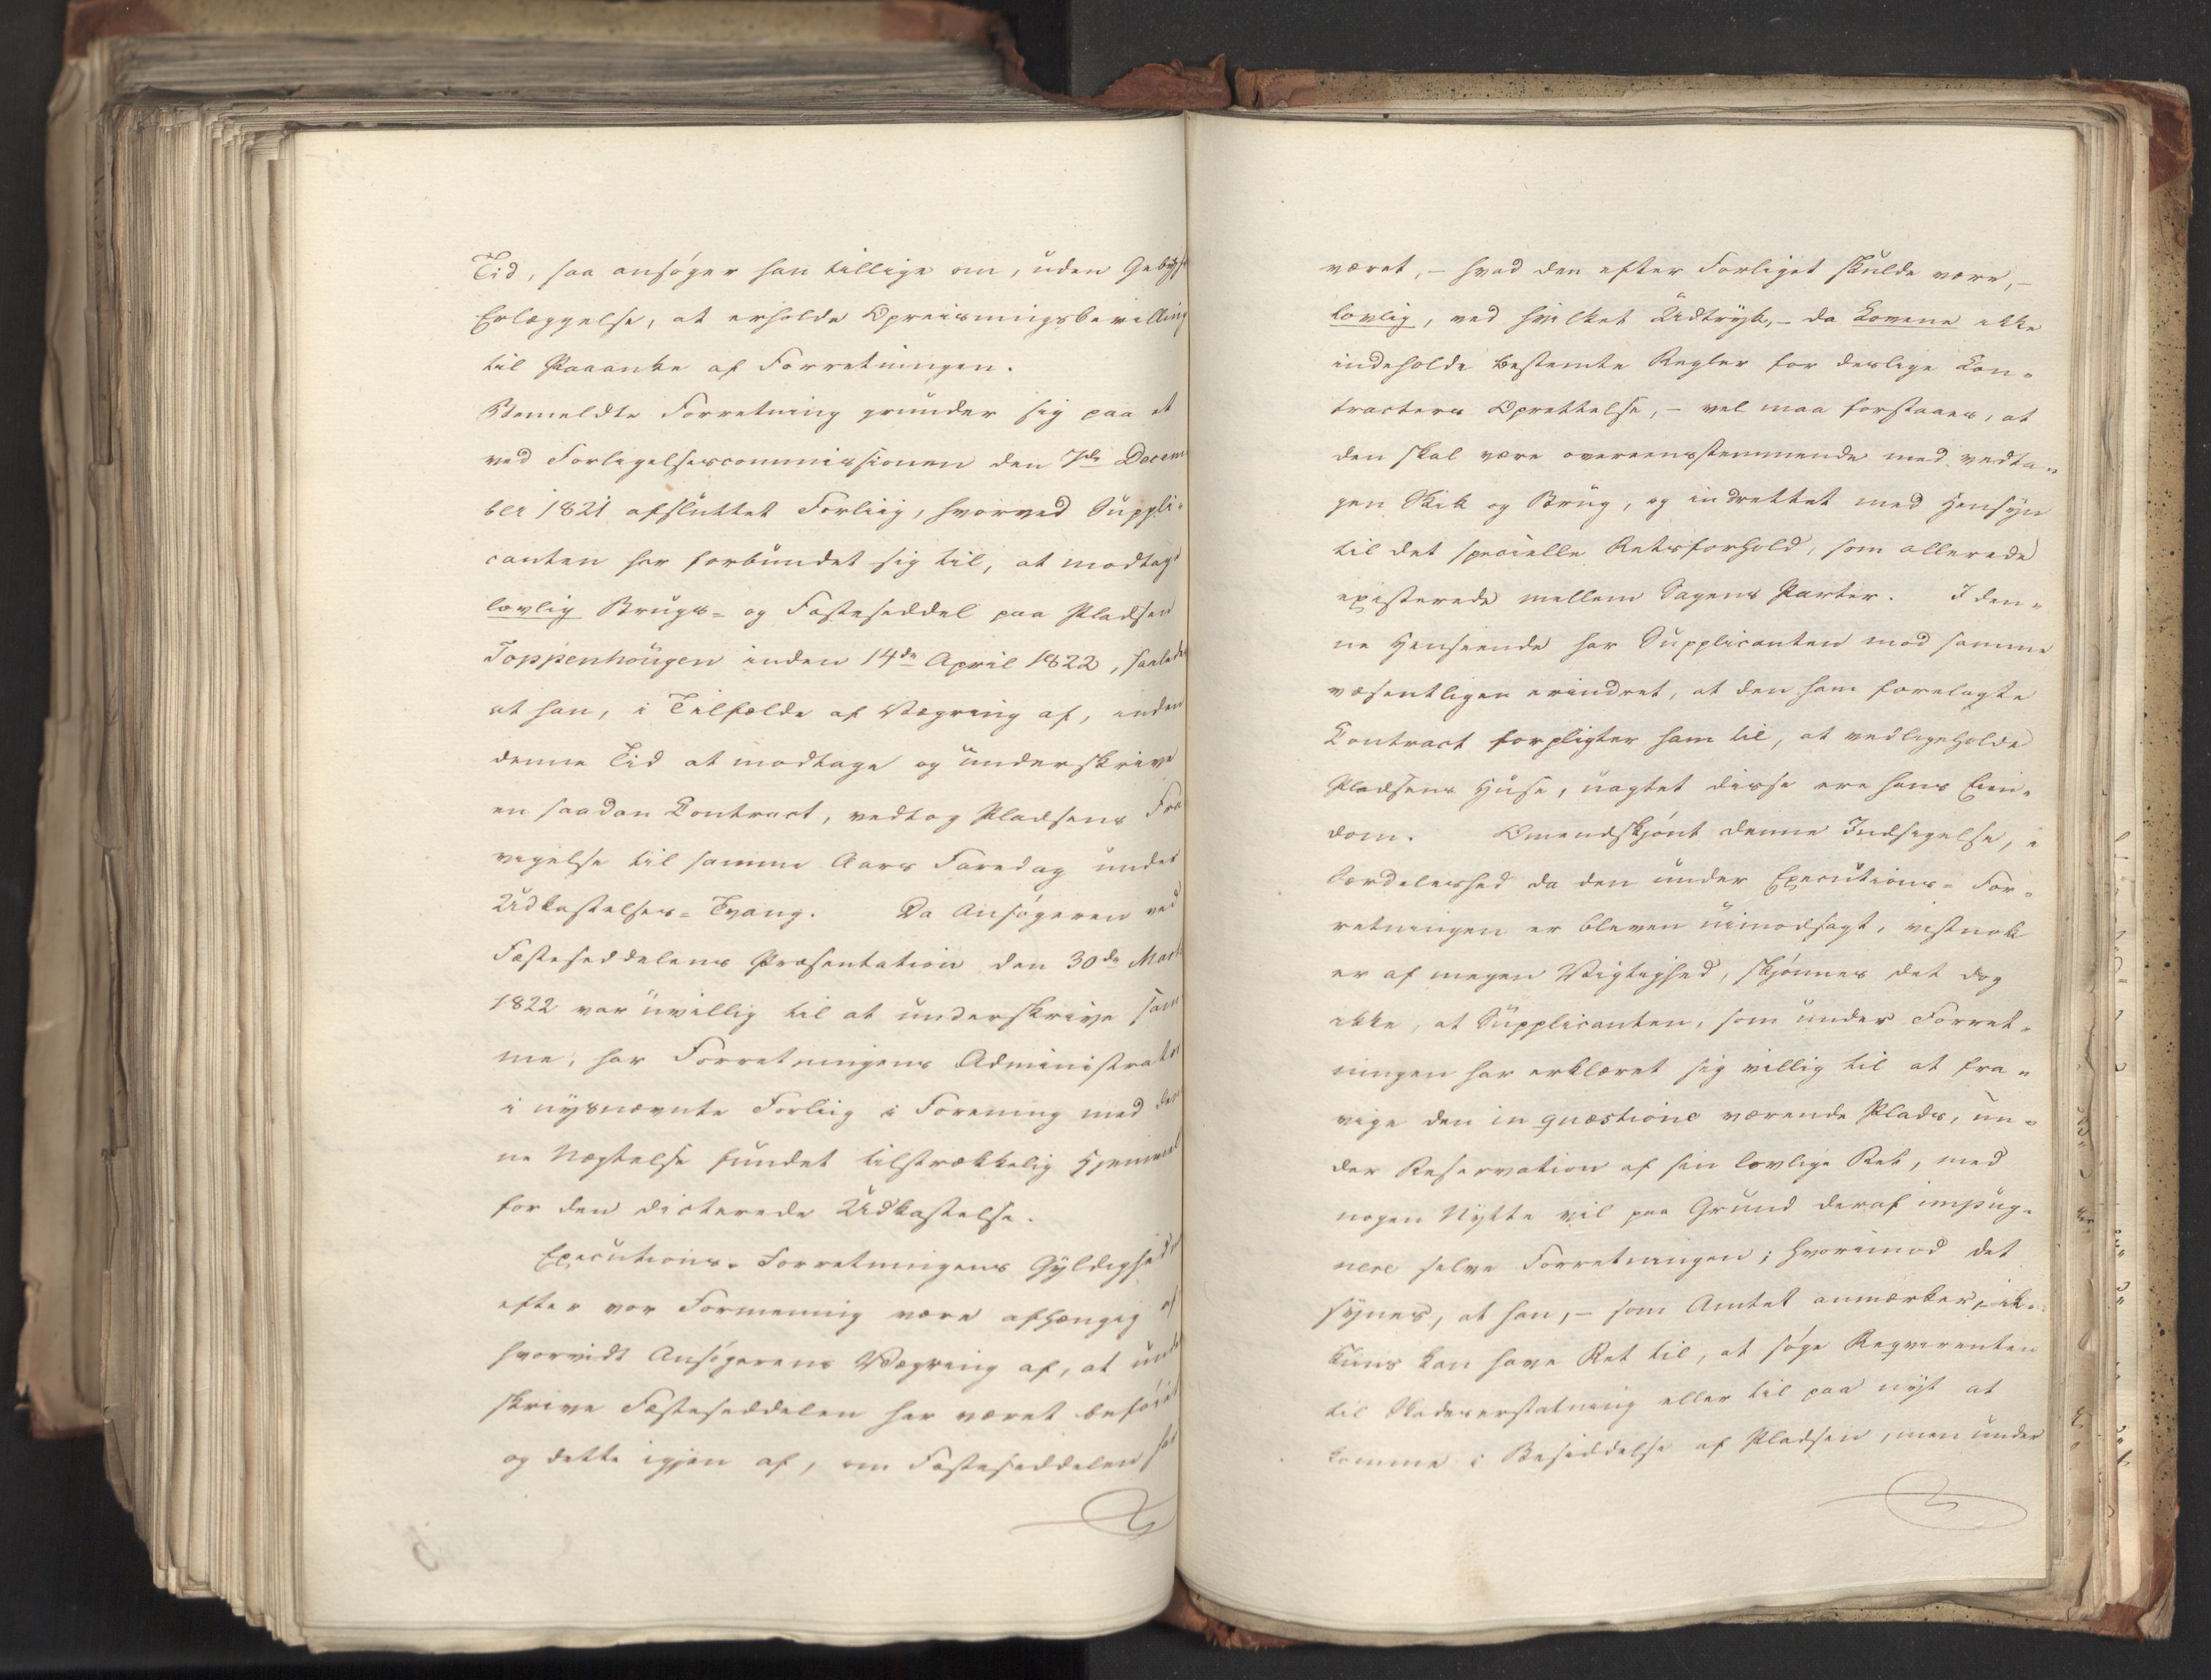 Tid, saa ansøger han tillige om, uden Gebyhrs
Erlæggelse, at erholde Opreisningsbevilling
til Paaanke af Forretningen.
Bemeldte Forretning grunder sig paa et
ved Forligelsescommissionen den 7de Decem
ber 1821 afsluttet Forliig, hvorved Suppli-
canten har forbundet sig til, at modtage
lovlig Brugs- og Fæsteseddel paa Pladsen
Toppenhougen inden 14de April 1822, saaledes
at han, i Tilfælde af Vægring af, inden
denne Tid at modtage og underskrive
en saadan Contract, vedtog Pladsens Fra
vigelse til samme Aars Faredag under
Udkastelses-Tvang. Da Ansøgeren ved
Fæsteseddelens Præsentation den 30de Marts
1822 var uvillig til at underskrive sam
me, har Forretningens Administrator
i nysnævnte Forliig i Forening med den
ne Nægtelse fundet tilstrækkelig Hjemmel
for den dicterede Udkastelse.
Executions-Forretningens Gyldighed
efter vor Formening være afhængig af
hvorvidt Ansøgerens Vægring af, at under
skrive Fæsteseddelen har været beføiet
og dette igjen af, om Fæsteseddelen har
været, - hvad den efter Forliget skulde være, -
lovlig, ved hvilket Udtryk, - da Lovene ikke
indeholde bestemte Regler for deslige Con-
tracters Oprettelse, - vel maa forstaaes, at
den skal være overeensstemmende med vedta-
gen Skik og Brug, og indrettet med Hensyn
til det specielle Retsforhold, som allerede
existerede mellem Sagens Parter. I den-
ne Henseende har Supplicanten mod samme
væsentligen erindret, at den ham forelagte
Contract forpligter ham til, at vedligeholde
Pladsens Huse, uagtet disse ere hans Eien-
dom. Omendskjønt denne Indsigelse, i
særdeleshed da den under Executions-For-
retningen er bleven uimodsagt, vistnok
er af megen Vigtighed, skjønnes det dog
ikke, at Supplicanten, som under Forret-
ningen har erklæret sig villig til at fra-
vige den in quæstione værende Plads, un-
der Reservation af sin lovlige Ret, med
nogen Nytte vil paa Grund deraf impug-
nere selve Forretningen; hvorimod det
synes, at han, - som Amtet anmærker, - ik-
kuns kan have Ret til, at søge Reqvirenten
til Skadeserstatning eller til paa nyt at
komme i Besiddelse af Pladsen, men under